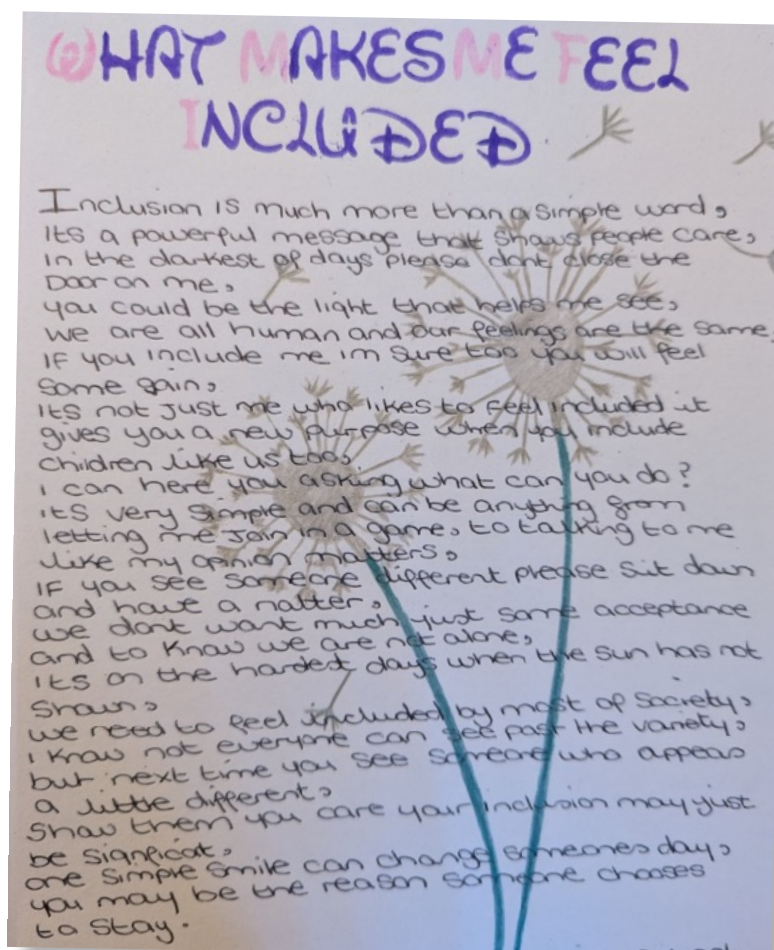 WHAT MAKES ME FEEL
INCLUDED
Inclusion is much more than a simple word,
its a powerful message that shows people care,
in the darkest of days please dont close the
Door on me,
you could be the light that helps me see,
we are all human and our feelings are the same,
IF you include me im sure too you will feel
some gain,
its not just me who likes to feel included it
gives you a new purpose when you include
children like us too,
i can here you asking what can you do?
its very simple and can be anything from
letting me join in a game, to talking to me
like my opinion matters,
IF you see someone different please sit down
and have a natter,
we dont want much just some acceptance
and to know we are not alone,
its on the hardest days when the sun has not
shown,
we need to feel included by most of society,
i know not everyone can see past the variety,
but next time you see someone who appears
a little different,
show them you care your inclusion may just
be significat,
one simple smile can change someones day,
you may be the reason someone chooses
to stay.